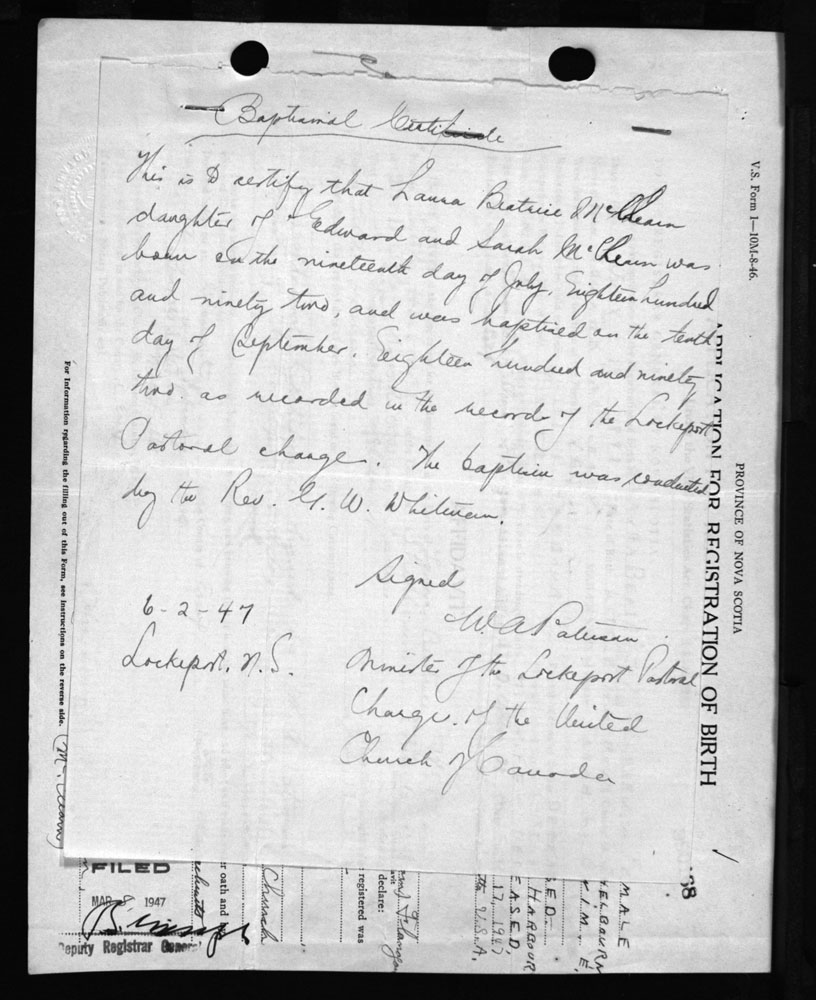 Baptismal Certificate
This is to certify that Laura Beatrice McClearn
daughter of Edward and Sarah McClearn was
born on the nineteenth day of July, Eighteen hundred
and ninety two, and was baptised on the tenth
day of September, Eighteen hundred and ninety
two. as recorded in the records of the Lockeport
Pastoral charge. The baptism was conducted
by the Rev. G. W. Whitman.
Signed
6-2-47
W. A. Paterson
Lockeport, N.S.
Minister of the Lockeport Pastoral
Charge. of the United
Church of Canada
V.S. Form 1—10M-8-46.
PROVINCE OF NOVA SCOTIA
APPLICATION FOR REGISTRATION OF BIRTH
For Information regarding the filling out of this Form, see Instructions on the reverse side.
(McClearn)
FILED
MAR 8 1947
Deputy Registrar General
r oath and
Church
declare:
registered was
17, 1947
U.S.A.
EASED.
HARBOUR
ED.
MALE
68